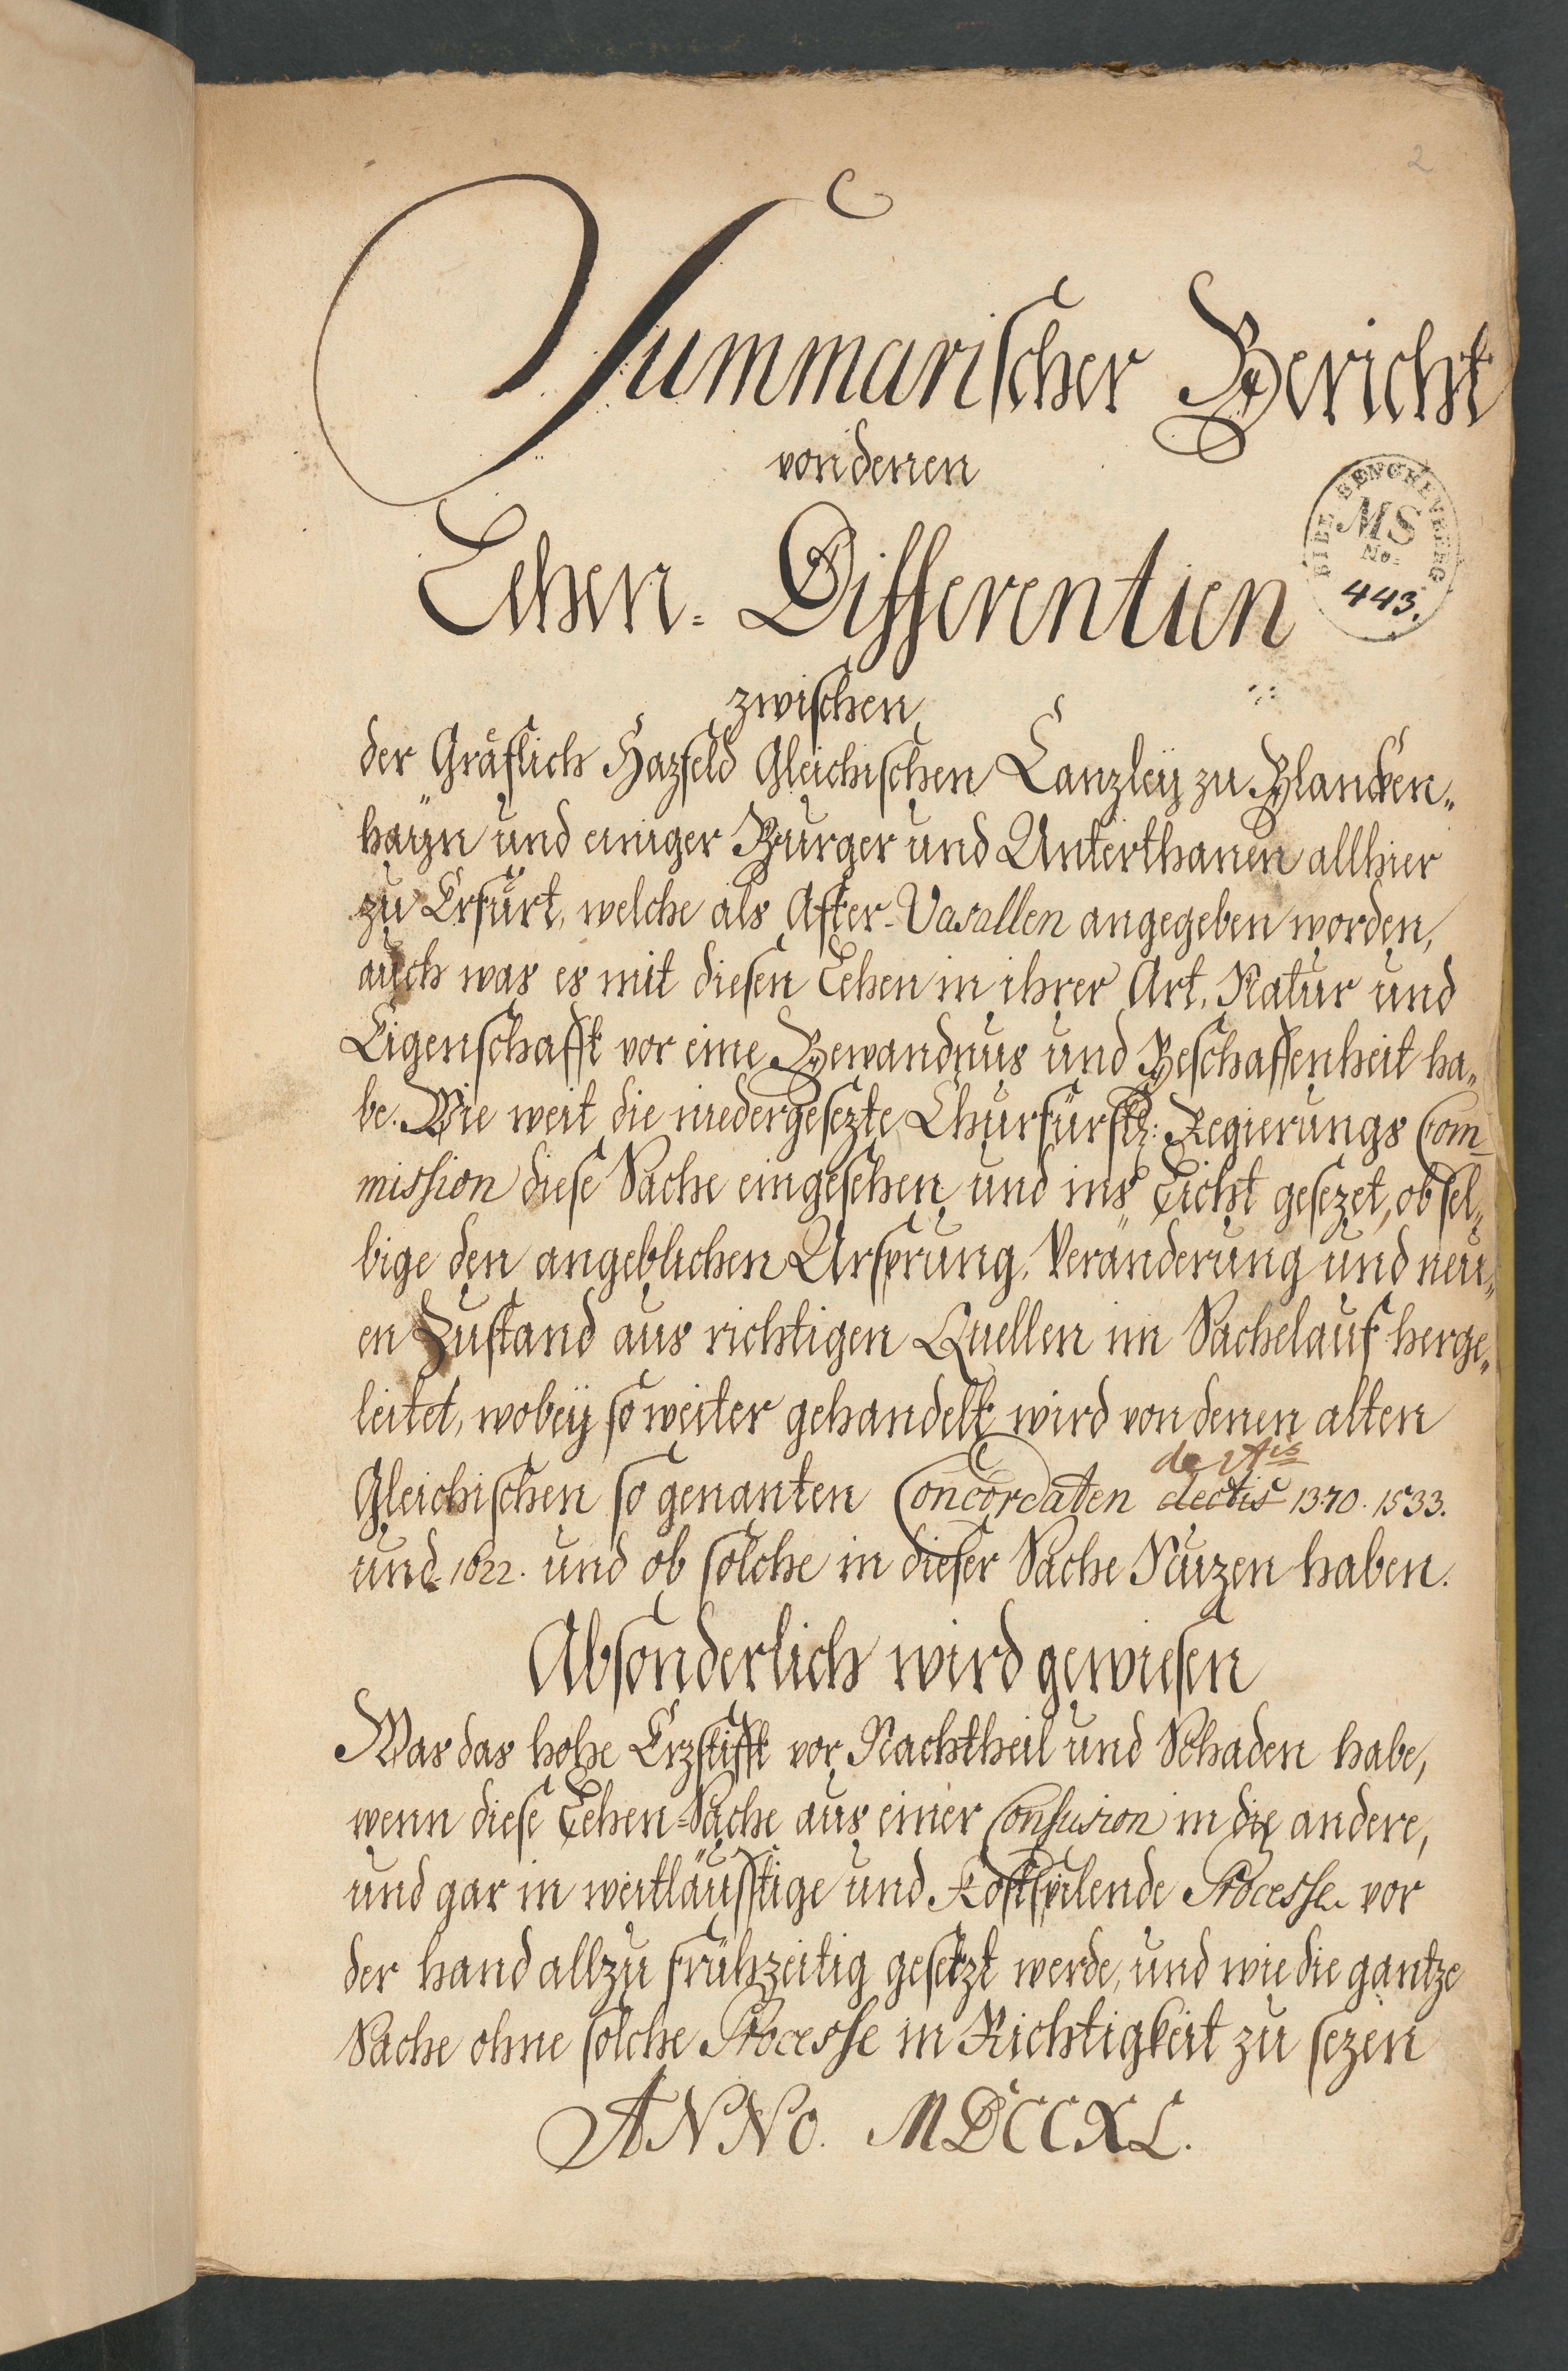 2
Summarischer Bericht
von denen
Lehen-Differentien
BIBL. SENCKENBERG.
MS
No.
443.
zwischen
der Gräflich Hazfeld Gleichischen Canzleÿ zu Blancken-
haÿn und einiger Burger und Unterthanen allhier
zu Erfurt, welche als After-Vasallen angegeben worden,
auch was es mit diesen Lehen in ihrer Art, Natur und
Eigenschafft vor eine Bewandnus und Beschaffenheit ha-
be. Wie weit die niedergesezte Churfürstl: Regierungs Com-
mission diese Sache eingesehen und ins Licht gesezet, ob sel-
bige den angeblichen Ursprung, Veränderung und neu-
en Zustand aus richtigen Quellen im Sachelauf herge-
leitet, wobeÿ so weiter gehandelt wird von denen alten
Gleichischen so genanten Concordaten dectis 1370. 1533.
und 1622. und ob solche in dieser Sache Nuzen haben.
Absonderlich wird gewiesen
Was das hohe Erzstifft vor Nachtheil und Schaden habe,
wenn diese Lehen-Sache aus einer Confusion in die andere,
und gar in weitläufftige und Kostspilende Processe vor
der hand allzu frühzeitig gesetzt werde, und wie die gantze
Sache ohne solche Processe in Richtigkeit zu sezen
ANNO. MDCCXL.